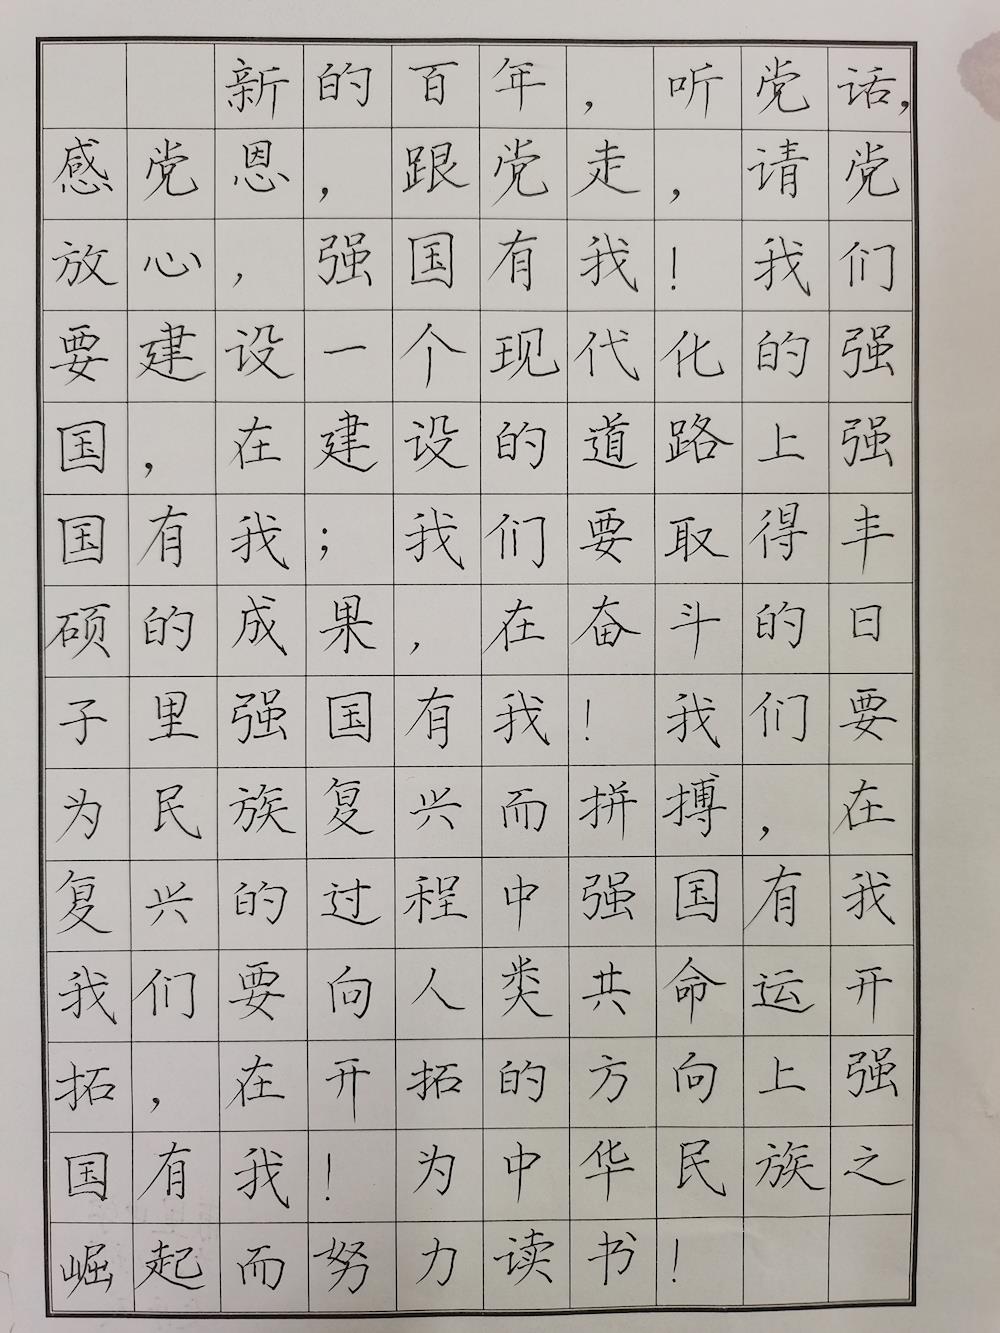 新的百年，听党话，
感党恩，跟党走，请党
放心，强国有我！我们
要建设一个现代化的强
国，在建设的道路上强
国有我；我们要取得丰
硕的成果，在奋斗的日
子里强国有我！我们要
为民族复兴而拼搏，在
复兴的过程中强国有我
我们要向人类共命运开
拓，在开拓的方向上强
国有我！为中华民族之
崛起而努力读书！